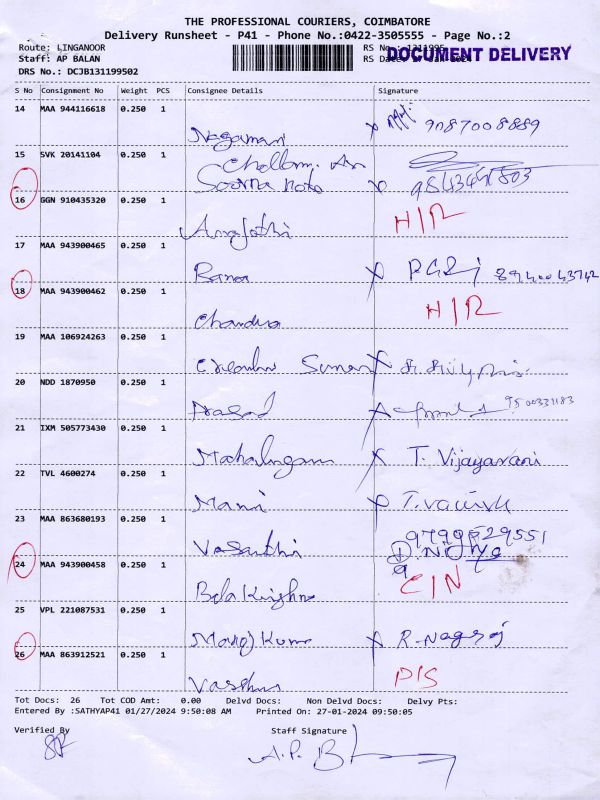 THE PROFESSIONAL COURIERS, COIMBATORE
Delivery Runsheet - P41 - Phone No.:0422-3505555 - Page No.:2
Route: LINGANOOR RS No.:
Staff: AP BALAN RS Da
DOCUMENT DELIVERY
DRS No.: DCJB131199502
S No Consignment No Weight PCS Consignee Details Signature
14 MAA 944116618 0.250 1
Nagamani 9087008889
15 SVK 20141104 0.250 1
16 GGN 910435320 0.250 1
H/R
17 MAA 943900465 0.250 1
18 MAA 943900462 0.250 1
Chandra H/R
19 MAA 106924263 0.250 1
20 NDD 1870950 0.250 1
Prasad
21 IXM 505773430 0.250 1
Mahalingam T. Vijayarani
22 TVL 4600274 0.250 1
Mani
23 MAA 863680193 0.250 1
9799529551
Vasanthi
24 MAA 943900458 0.250 1
Bala Krishna C/N
25 VPL 221087531 0.250 1
Manoj Kumar R. Nagaraj
26 MAA 863912521 0.250 1
D/S
Tot Docs: 26 Tot COD Amt: 0.00 Delvd Docs: Non Delvd Docs: Delvy Pts:
Entered By :SATHYAP41 01/27/2024 9:50:08 AM Printed On: 27-01-2024 09:50:05
Verified By Staff Signature
A.P. B